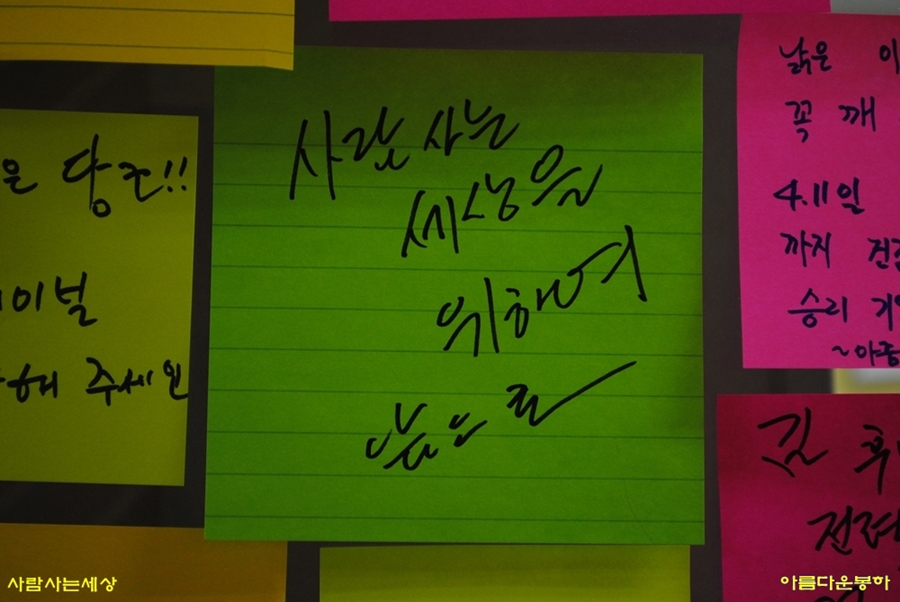 사람 사는
세상을
위하여
앞으로
은 당근!!
이널
해 주세요
낡은 이
꼭 깨
4.11일
까지 건강
승리 기
~아름
김 후
전
사람사는세상
아름다운봉하